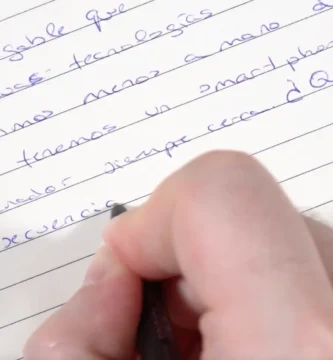 gable que
tecnologías
menos a mano
tenemos un smartpho
nador siempre cerca. ¿Q
xecuencia